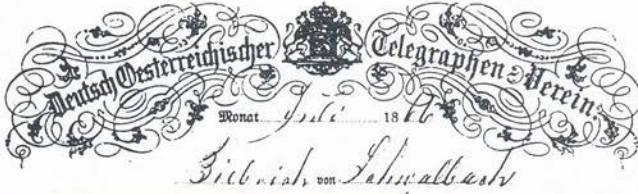 Deutsch Oesterreichischer Telegraphen-Verein.
Monat Juli 18
Biebrich von Schwalbach